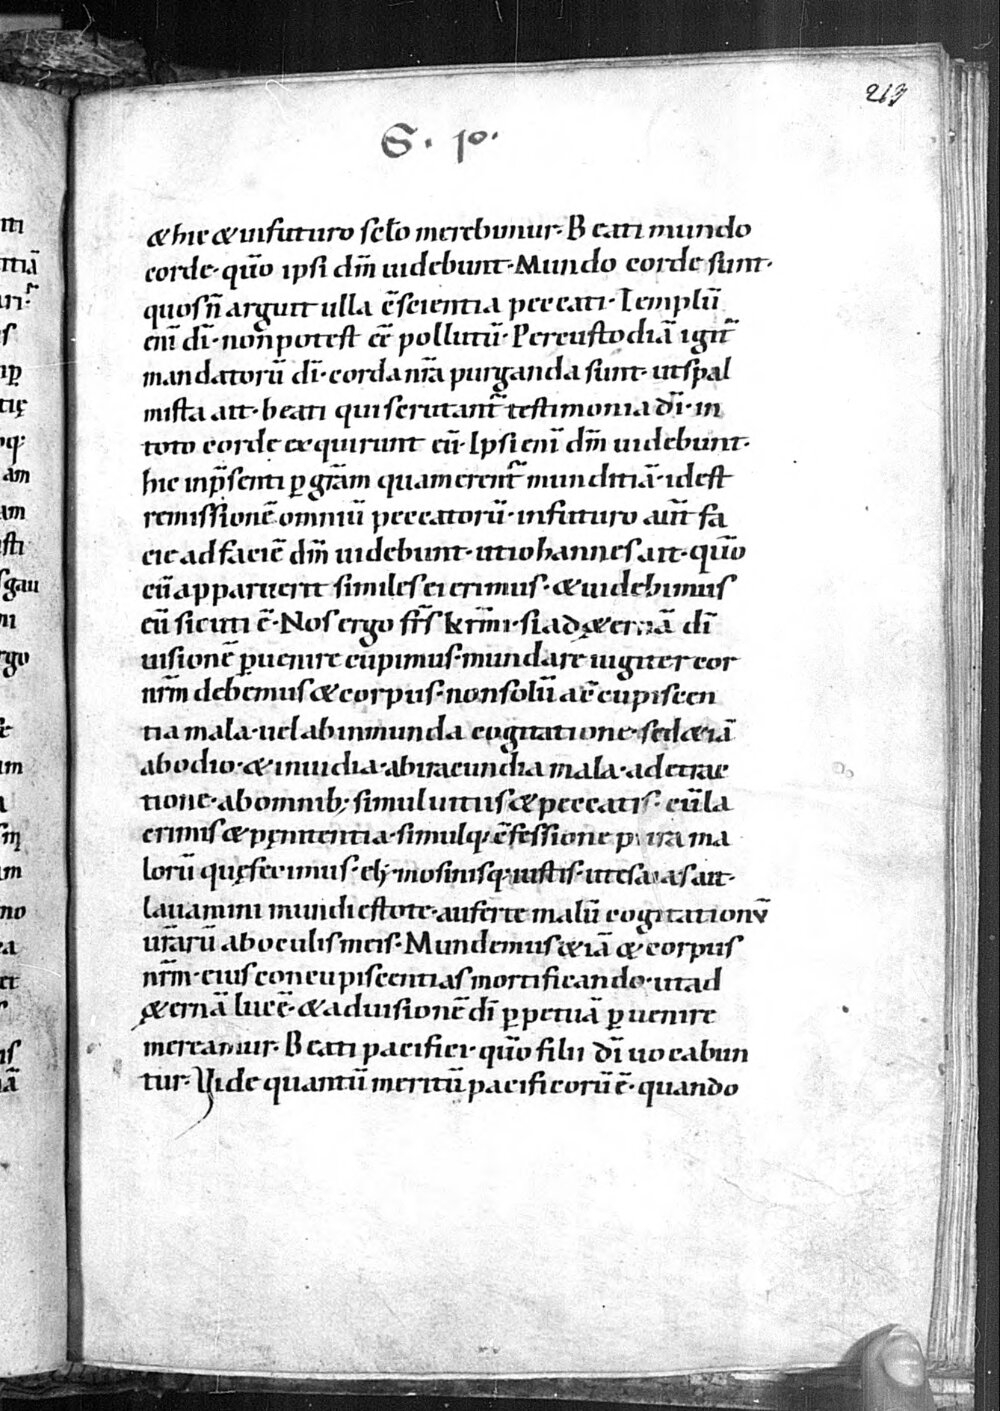 219
S. ıº.
& hic & infuturo sc̄lo merebimur· Beati mundo
corde· qm̄o ipsi dm̄ uidebunt· Mundo corde sunt·
quos n̄ arguit ulla c̄scientia peccati· Templū
eni dī· non potest eē pollutū· Per custodiā igit̄
mandatorū dī· corda nr̄a purganda sunt· ut spal
mista ait· beati qui scrutant̄ testimonia dī· in
toto corde exquirunt eū· Ipsi eni dm̄ uidebunt·
hic in p̄senti p̱ grām quam erent̄ munditiā· idest
remissionē omniū peccatorū· infuturo aūt fa
cie ad faciē dm̄ uidebunt· ut iohannes ait· qm̄o
cū apparuerit similes ei erimus· & uidebimus
eū sicuti ē· Nos ergo fr̄s kr̄mi· si ad &ernā dī
uisionē p̱uenire cupimus· mundare iugiter cor
nr̄m debemus & corpus· non solū a c̄cupiscen
tia mala· uel ab inmunda cogitatione· sed &iā
ab odio· & inuidia· ab iracundia mala· a detrac
tione· ab omnib; simul uitiis & peccatis· cū la
crimis & pęnitentia· simulq; c̄fessione pura ma
lorū quę fecimus· elymosinisq; iustis· ut esaias ait·
lauamini mundi estote· auferte malū cogitationū
ur̄arū ab oculis meis· Mundemus &iā & corpus
nr̄m· eius concupiscentias mortificando· ut ad
&ernā lucē· & ad uisionē dī p̱petuā p̱uenire
mereamur· Beati pacifici· qm̄o filii dī uocabun
tur· Vide quantū meritū pacificorū ē· quando